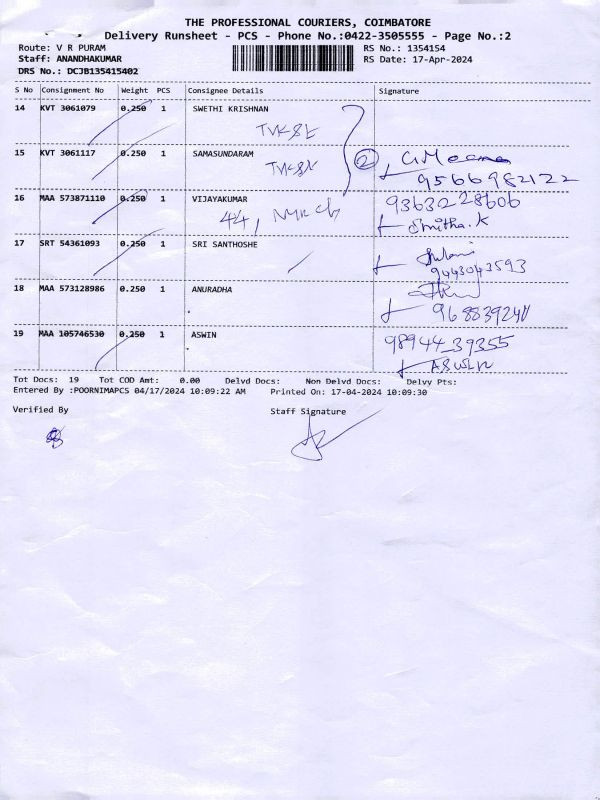 THE PROFESSIONAL COURIERS, COIMBATORE
Delivery Runsheet - PCS - Phone No.:0422-3505555 - Page No.:2
Route: V R PURAM RS No.: 1354154
Staff: ANANDHAKUMAR RS Date: 17-Apr-2024
DRS No.: DCJB135415402
S No Consignment No Weight PCS Consignee Details Signature
14 KVT 3061079 0.250 1 SWETHI KRISHNAN
15 KVT 3061117 0.250 1 SAMASUNDARAM
2 G.Meena
9566982122
16 MAA 573871110 0.250 1 VIJAYKUMAR 9363228606
44, Smitha.K
17 SRT 54361093 0.250 1 SRI SANTHOSHE
9443043593
18 MAA 573128986 0.250 1 ANURADHA
19 MAA 105746530 0.250 1 ASWIN 98944 39355
ASWIN
Tot Docs: 19 Tot COD Amt: 0.00 Delvd Docs: Non Delvd Docs: Delvy Pts:
Entered By :POORNIMAPCS 04/17/2024 10:09:22 AM Printed On: 17-04-2024 10:09:30
Verified By Staff Signature